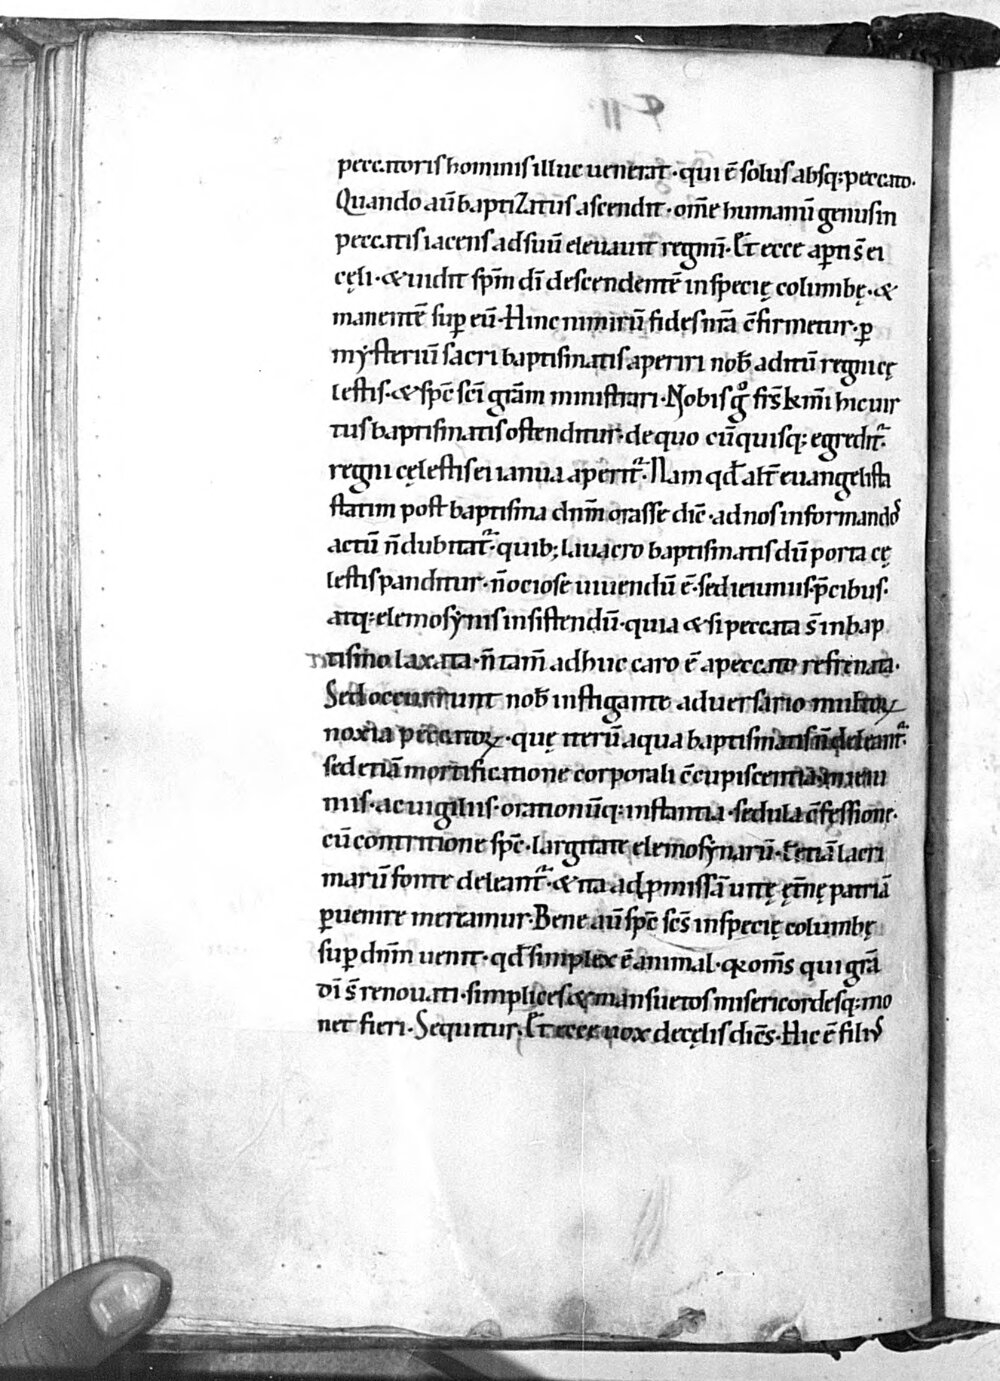 peccatoris hominis illuc uenerat · qui ē solus absq; peccato.
Quando aū baptiZatus ascendit · om̄e humanū genus in
peccatis iacens ad suū eleuauit regnū · Et ecce aꝑti s̄ ei
cęli · & uidit sp̄m dī descendentē in specię columbę · &
manentē suꝑ eū · Hinc nimirū fides nr̄a c̄firmetur · ꝑ
mẏsteriū sacri baptismatis aperiri nob̄ aditū regni cę
lestis · & sp̄c sc̄i grām ministrari · Nobis gͦ frs̄ km̄i hic uir
tus baptismatis ostenditur · de quo cū quisq; egredit᷑
regni cęlestis ei ianua aperit᷑ · Nam qd̄ alt̄ euangelista
statim post baptisma dnm̄ orasse dic̄ · ad nos informandoꝰ
actū n̄ dubitat᷑ · quib; lauacro baptismatis dū porta cę
lestis panditur · n̄ ociose uiuendū ē · sed ieiuniis p̄cibus ·
atq; elemosẏnis insistendū · quia & si peccata s̄ in bap
tismo laxata · n̄ tam̄ adhuc caro ē a peccato refrenata ·
Sed occurrunt nob̄ instigante aduersario multoꝝ
noxia peccatoꝝ · quę iterū aqua baptismatis n̄ deleant᷑ ·
sed etiā mortificatione corporali c̄cupiscentia
niis · ac uigiliis · orationūq; instantia · sedula c̄fessione ·
cū contritione sp̄c · largitate elemosẏnarū · & etiā lacri
marū fonte deleant᷑ · & ita ad ꝓmissā uitę ęt̄nę patriā
ꝑuenire mereamur · Bene aū sp̄c sc̄s in specię columbę
suꝑ dnm̄ uenit · qd̄ simplex ē animal · & om̄s qui grā
dī s̄ renouati · simplices & mansuetos misericordesq; mo
net fieri · Sequitur · Et ecce uox de cęlis dicēs · Hic ē filiꝰ